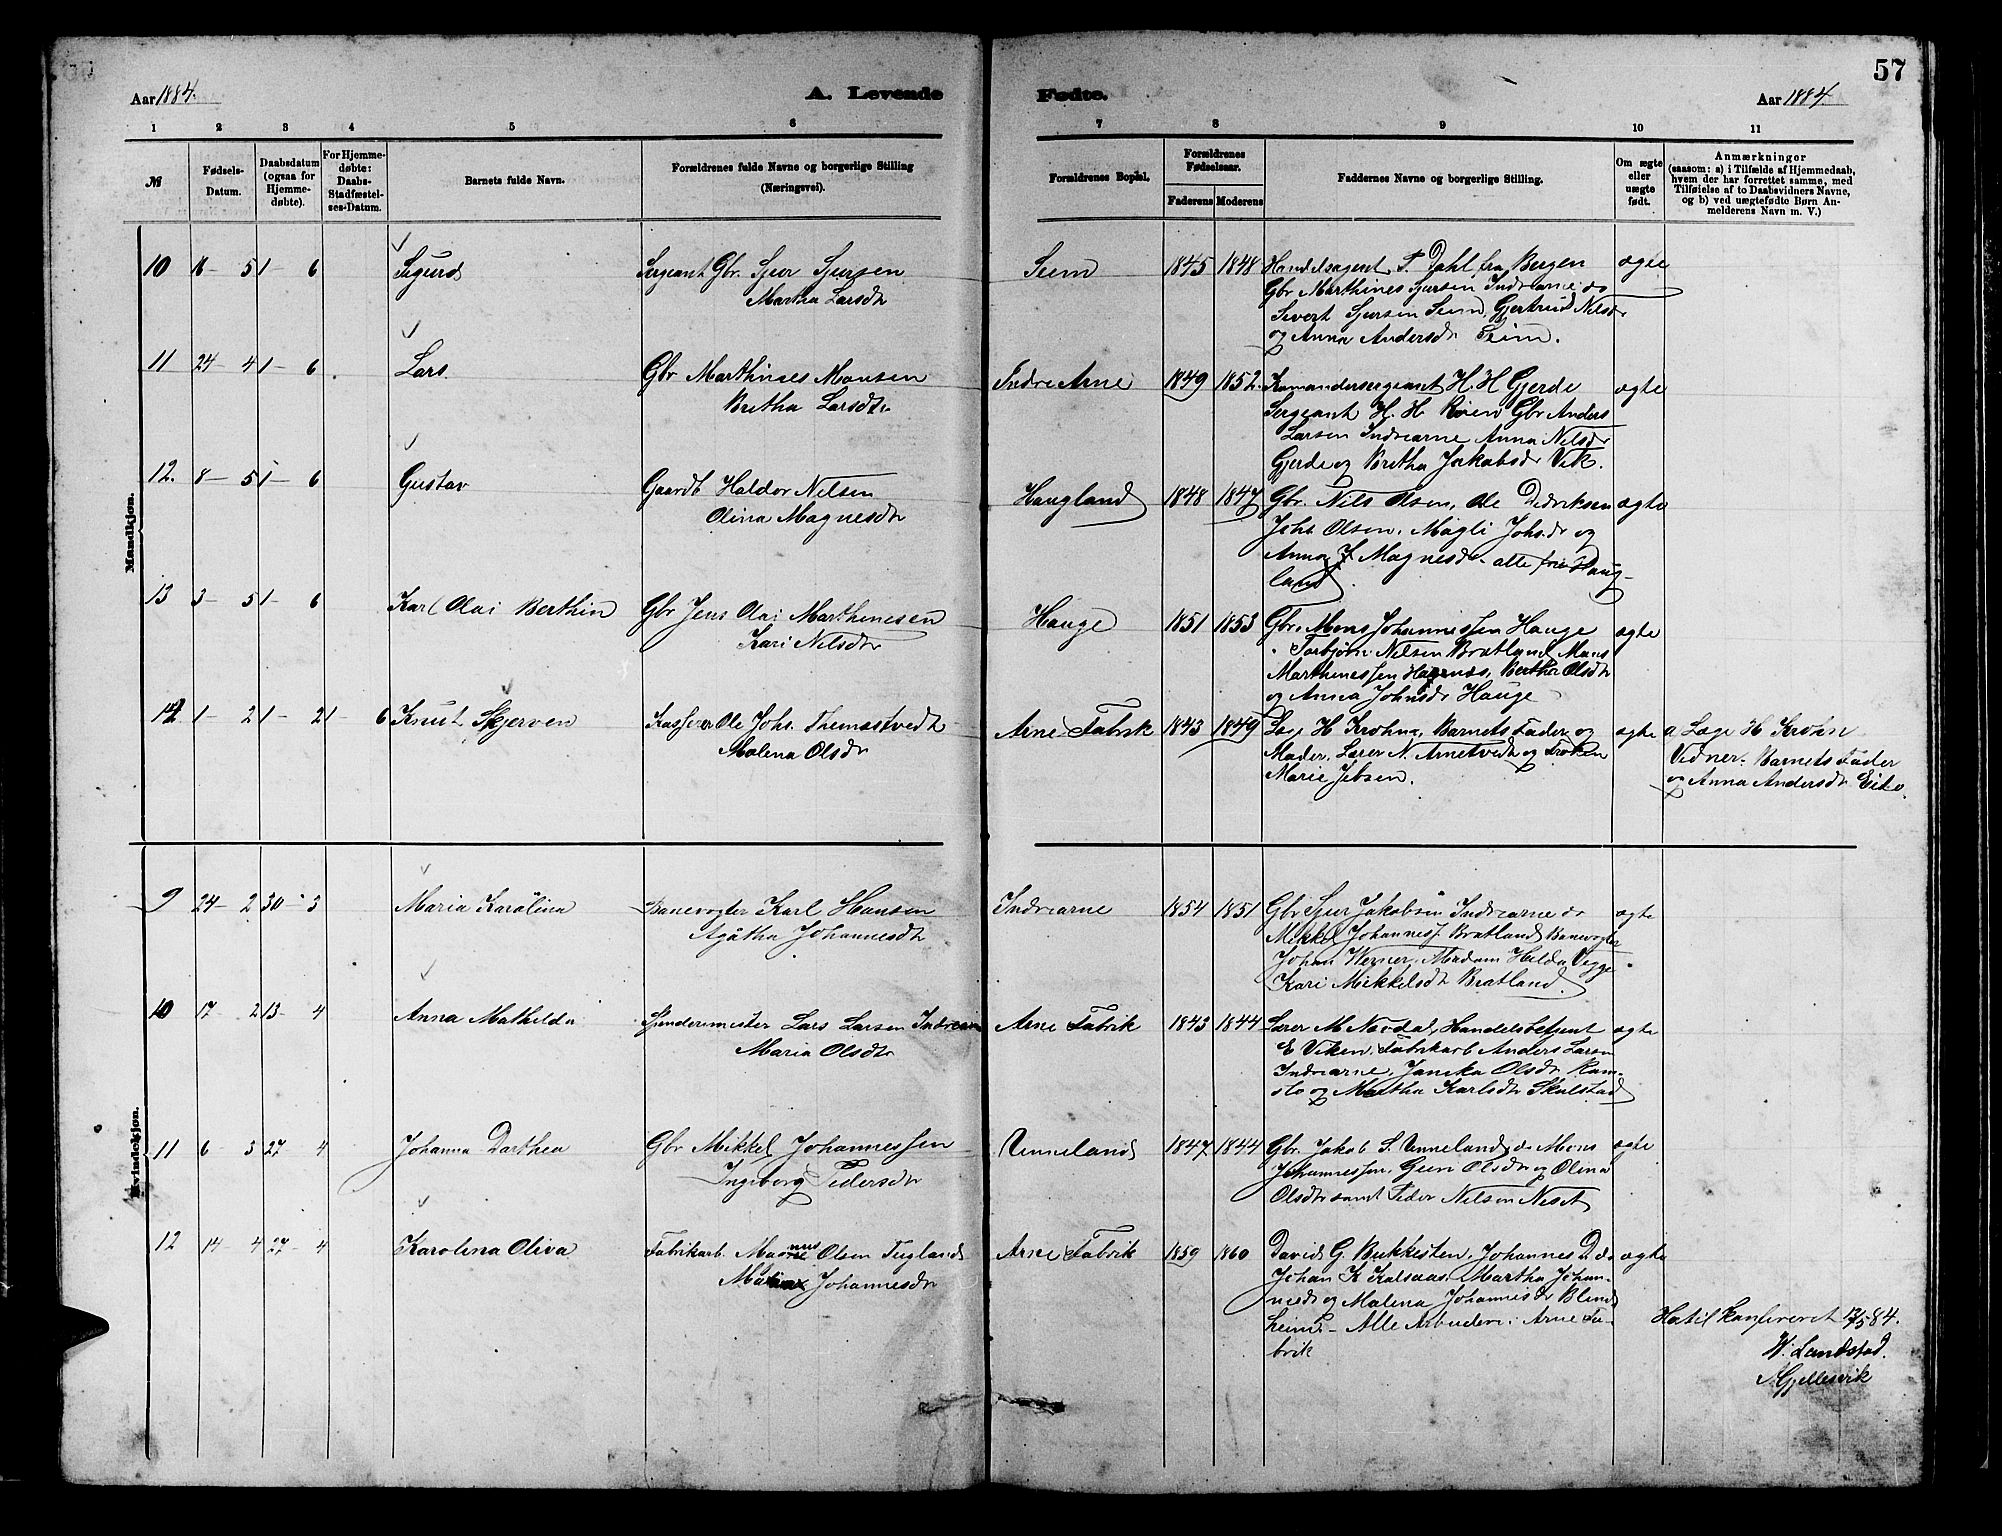 57
Aar 1884.
A. Levende
Fødte.
Aar 1884.
1 2 3 4 5 6 7 8 9 10 11
№
Fødsels-
Datum.
Daabsdatum
(ogsaa for
Hjemme-
døbte).
For Hjemme-
døbte:
Daabs-
Stadfæstel-
ses-Datum.
Barnets fulde Navn.
Forældrenes fulde Navne og borgerlige Stilling
(Næringsvei).
Forældrenes Bopæl.
Forældrenes
Fødselsaar.
Faderens Moderens
Faddernes Navne og borgerlige Stilling.
Om ægte
eller
uægte
født.
Anmærkninger
(saasom: a) i Tilfælde af Hjemmedaab,
hvem der har forrettet samme, med
Tilføielse af to Daabsvidners Navne,
og b) ved uægtefødte Børn An-
melderens Navn m. V.)
Mandkjøn.
10 16 - 5 1 - 6 Sigurd
Sergeant Gbr. Sjur Sjursen
Martha Larsdtr
Seim 1845 1848
Handelsagent T. Dahl fra Bergen
Gbr Marthines Sjursen Indrearne do
Sivert Sjursen Seim, Gjertrud Nilsdr
og Anna Andersdr Seim.
ægte
11 24 - 4 1 - 6 Lars
Gbr Marthines Monsen
Britha Larsdtr
Indre Arne 1849 1852
Komandersergeant H. H Gjerde
Sergeant H. H. Røien Gbr Anders
Larsen Indrearne Anna Nilsdr
Gjerde og Britha Jakobsdr Vik.
ægte
12. 8 - 5 1 - 6 Gustav
Gaardb Haldor Nilsen
Olina Magnesdtr
Haugland 1848 1847
Gbr. Nils Olsen, Ole Didriksen
Johs Olsen, Magli Johsdr og
Anna J. Magnesdr alle fra Haug-
land
ægte
13 3 - 5 1 - 6 Karl Olai Berthin
Gbr Jens Olai Marthinesen
Kari Nilsdtr
Hauge 1851 1853
Gbr. Mons Johannessen Hauge
Torbjørn Nilsen Bratland, Mons
Marthinessen Hagenæs, Bertha Olsdtr
og Anna Johnsdr Hauge
ægte
14 1 - 2 1 - 2 1 - 6 Knut Skjerven
Kasserer Ole Johs. Themastvedt
Malena Olsdr
Arne Fabrik 1843 1849
Læge H Krohn, Barnets Fader og
Moder, Lærer N. Arnetvedt og Frøken
Marie Jebsen.
ægte
a. Læge H Krohn
Vidner. Barnets Fader
og Anna Andersdr Eike.
Kvindekjøn.
9 24 - 2 30 - 3 Maria Karolina
Banevogter Karl Hansen
Agatha Johannesdtr
Indrearne 1854 1851
Gbr Sjur Jakobsen Indrearne do
Mikkel Johannesf. Bratland, Banevogter
Johan Werner, Madam Hilda Vigge
Kari Mikkelsdtr Bratland.
ægte
10 17 - 2 13 - 4 Anna Mathilda
Spindemester Lars Larsen Indrearne
Maria Olsdtr
Arne Fabrik 1843 1844
Lærer M Nordal, Handelsbetjent
E Viken, Fabrikarb Anders Larsen
Indrearne, Janika Olsdtr Ram-
slo og Martha Karlsdtr Skulstad
ægte
11 6 - 3 27 - 4 Johanna Darthea
Gbr Mikkel Johannessen
Ingeborg Pedersdtr
Unneland 1847 1844
Gbr. Jakob S. Unneland, do Mons
Johannessen, Guri Olsdtr og Olina
Olsdtr samt Peder Nilsen Neset
ægte
12 14 - 4 27 - 4 Karolina Oliva
Fabrikarb. Magnus Olsen Fugland
Malina Johannesdtr
Arne Fabrik 1859 1860
David G Bukkesten, Johannes D. do
Johan K Kalsaas, Martha Johan-
nesdr og Malena Johannesdr Blind-
heim - Alle Arbeidere i Arne Fa-
brik
ægte
Hertil konfereret 17/5 84.
W. Landstad.
A Gjellesvik